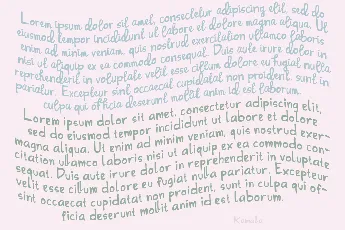 Lorem ipsum dolor sit amet, consectetur adipiscing elit, sed do
eiusmod tempor incididunt ut labore et dolore magna aliqua. Ut
enim ad minim veniam, quis nostrud exercitation ullamco laboris
nisi ut aliquip ex ea commodo consequat. Duis aute irure dolor in
reprehenderit in voluptate velit esse cillum dolore eu fugiat nulla
pariatur. Excepteur sint occaecat cupidatat non proident, sunt in
culpa qui officia deserunt mollit anim id est laborum.
Lorem ipsum dolor sit amet, consectetur adipiscing elit,
sed do eiusmod tempor incididunt ut labore et dolore
magna aliqua. Ut enim ad minim veniam, quis nostrud exer-
citation ullamco laboris nisi ut aliquip ex ea commodo con-
sequat. Duis aute irure dolor in reprehenderit in voluptate
velit esse cillum dolore eu fugiat nulla pariatur. Excepteur
sint occaecat cupidatat non proident, sunt in culpa qui of-
ficia deserunt mollit anim id est laborum.